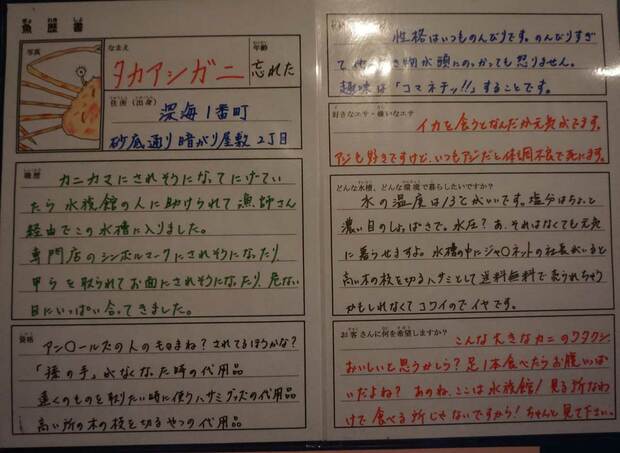 魚歴書
写真
なまえ
タカアシガニ
年齢
忘れた
住所(出身)
深海1番町
砂底通り暗がり屋敷2丁目
職歴
カニカマにされそうになってにげてい
たら水族館の人に助けられて漁師さん
経由でこの水槽に入りました。
専門店のシンボルマークにされそうになったり
甲らを取られてお面にされそうになったり、危ない
目にいっぱい合ってきました。
資格
アン〇ールズの人のものまね?されてるほうかな?
「孫の手」がなくなった時の代用品
遠くのものを取りたい時に使うハサミグッズの代用品
高い所の木の枝を切るやつの代用品
性格はいつものんびりです。のんびりすぎ
て他の生き物が頭にのっかっても怒りません。
趣味は「コマネチッ!!」することです。
好きなエサ・嫌いなエサ
イカを食うとなんだか元気がでます。
アジも好きですけど、いつもアジだと体調不良で死にます。
どんな水槽、どんな環境で暮らしたいですか?
水の温度は13℃がいいです。塩分はちょと
濃い目のしょっぱさで。水圧?あ、それはなくても元気
に暮らせますよ。水槽の中にジャ〇ネットの社長がいると
高い木の枝を切るハサミとして送料無料で売られちゃう
かもしれなくてコワイのでイヤです。
お客さんに何を希望しますか?
こんな大きなカニのワタクシ、
おいしいと思うかしら?足1本食べたらお腹いっぱ
いだよね?あのね、ここは水族館!見る所なわ
けで食べる所じゃないですから!ちゃんと見て下さい。